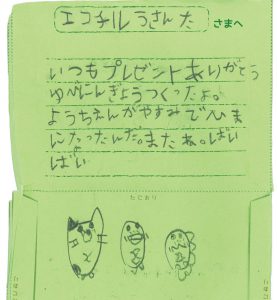 エコチル うさんた さまへ
いつもプレゼントありがとう
ゆびにんぎょうつくったよ。
ようちえんがやすみでひま
になったんだ。またね。ばい
ばい
たにおり